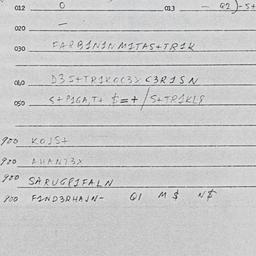 012 0 013 - Q2)-S+
020 -
030 FARB1N1NM1TAS+TR1K
040 D3S+TR1KOC3X C3R1SN
050 S+P1GA,T+ $=+/S+TR1KL8
900 KOJS+
900 AHANT3X
900 SARUGP1FALN
900 F1ND3RHAJN- Q1 M$ N$